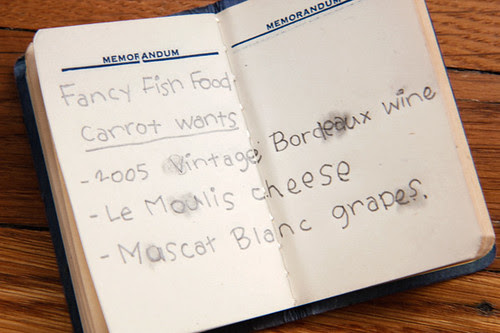 MEMORANDUM
MEMORANDUM
Fancy Fish Food.
Carrot wants
- 2005 Vintage Bordeaux wine
- Le Moulis cheese
- Muscat Blanc grapes.